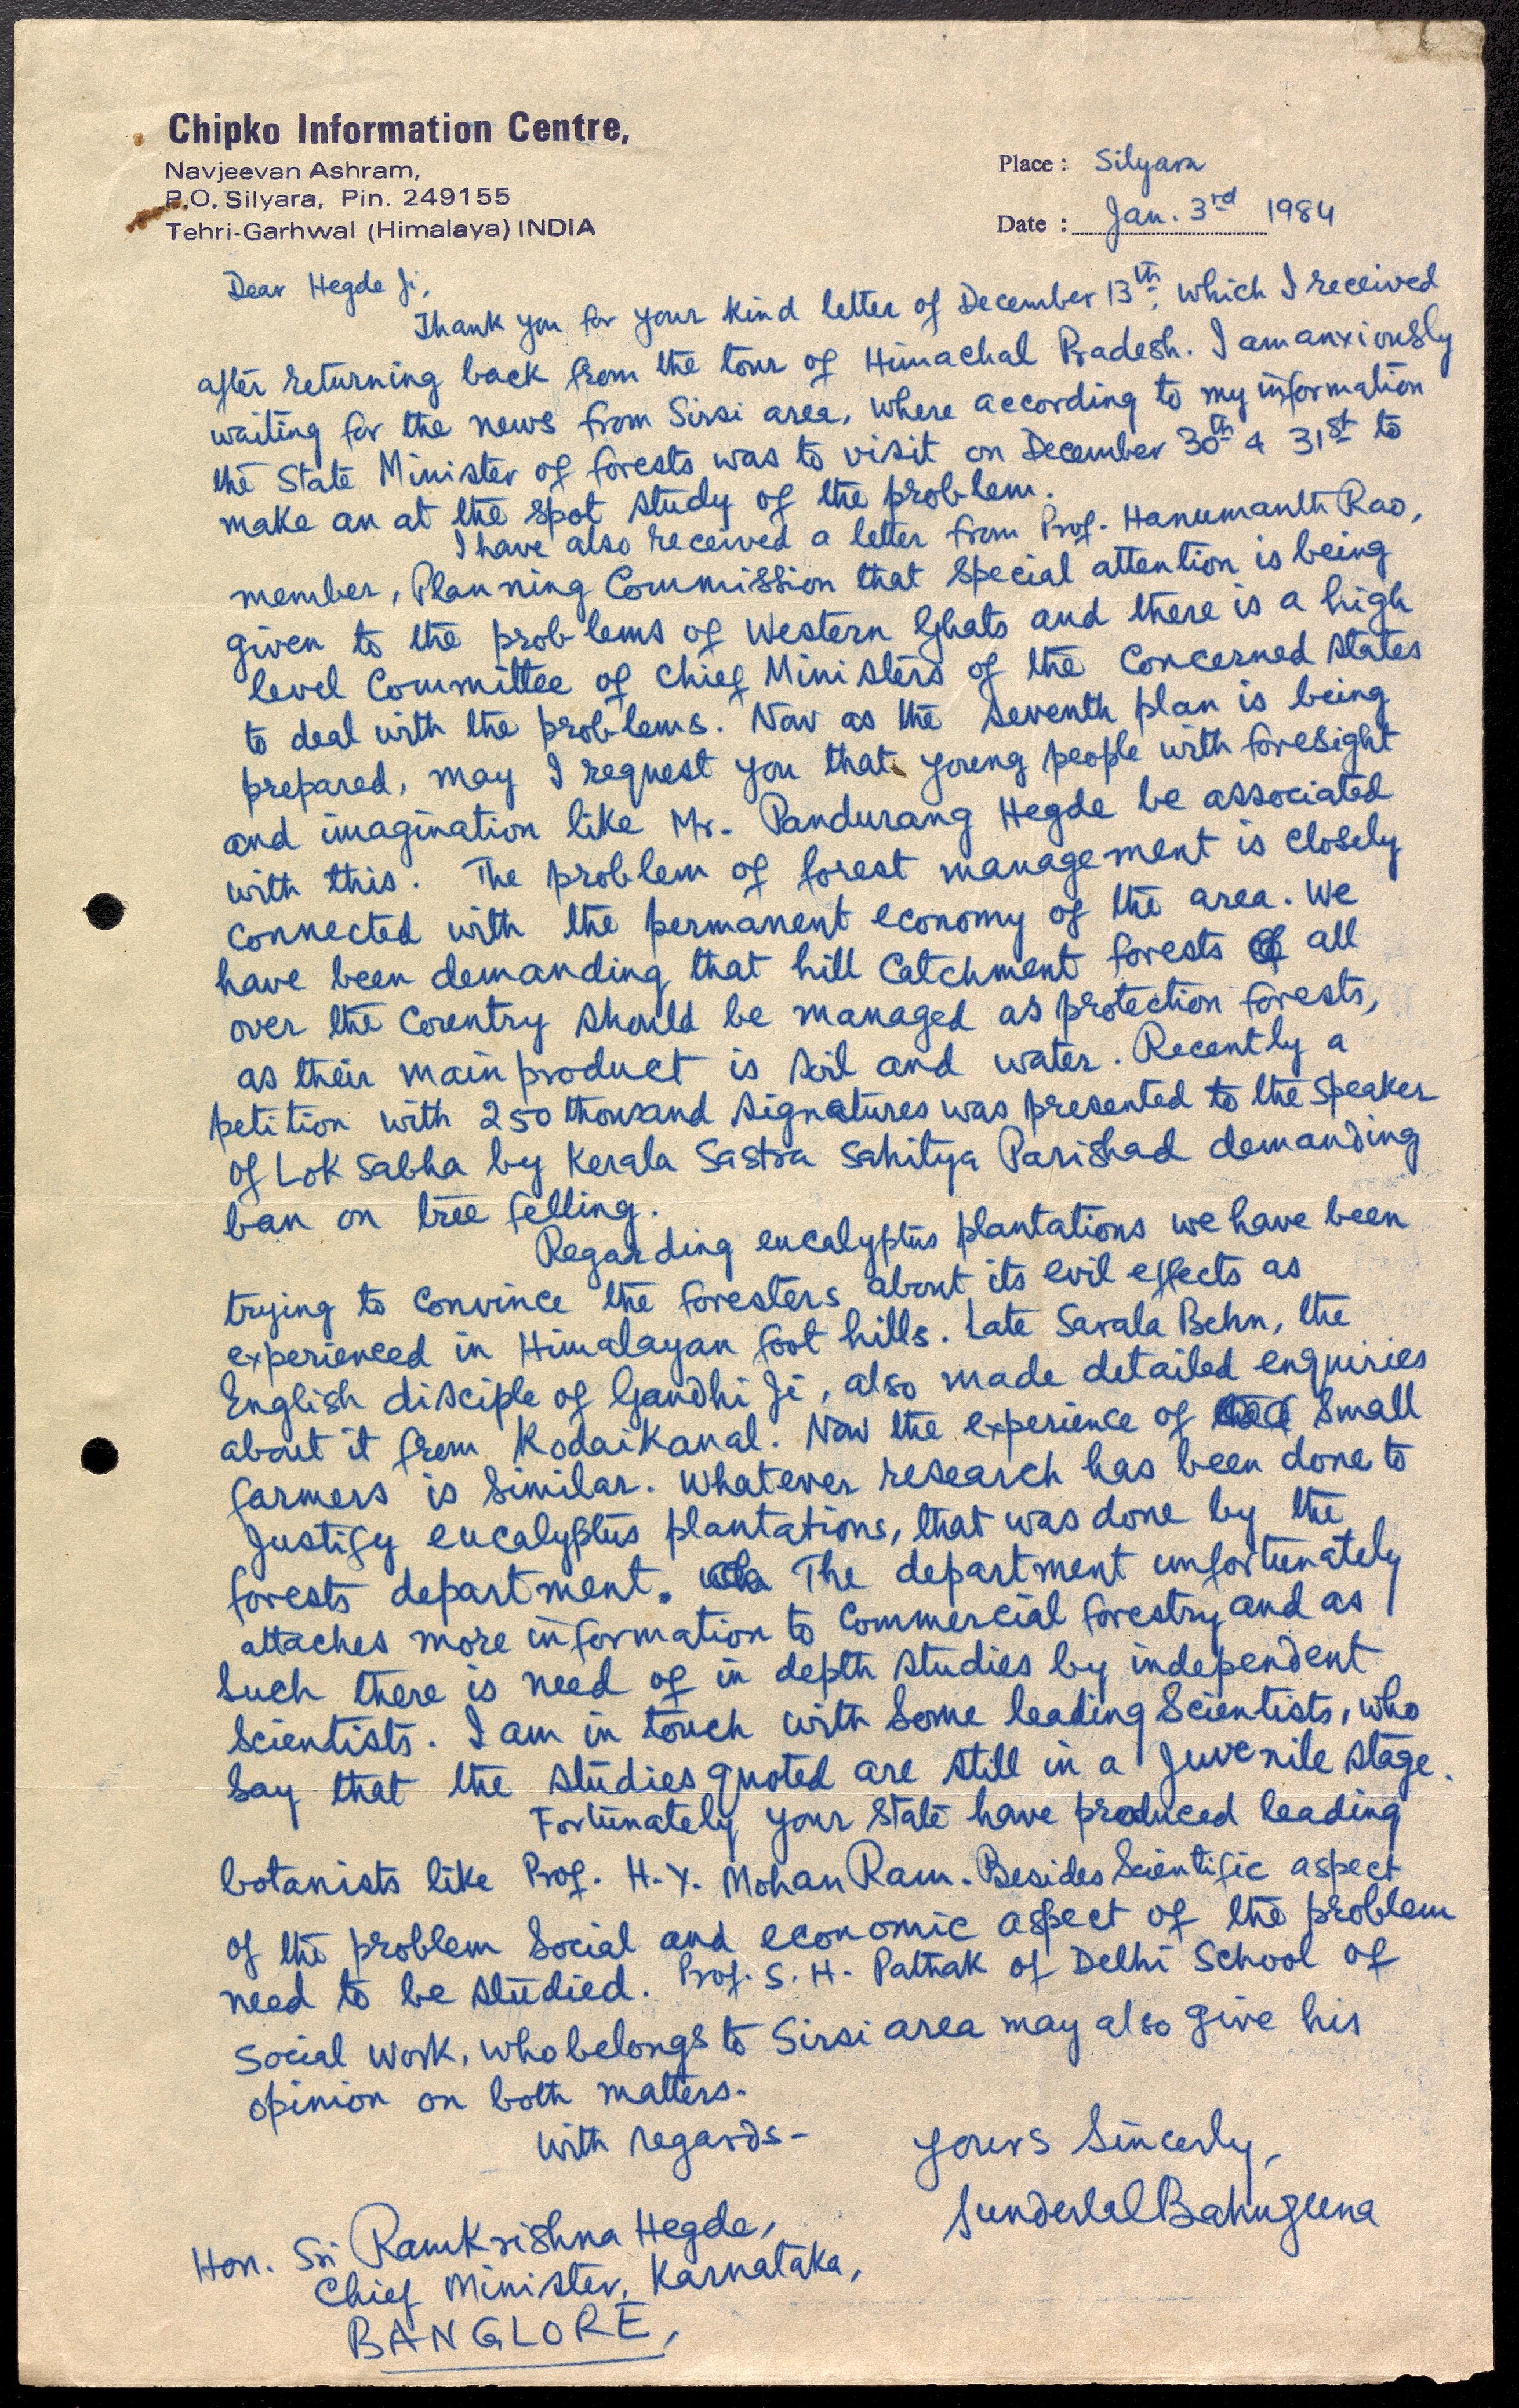 Chipko Information Centre,
Navjeevan Ashram,
P.O. Silyara, Pin. 249155
Tehri-Garhwal (Himalaya) INDIA
Place : Silyara
Date : Jan. 3rd 1984
Dear Hegde Ji,
Thank you for your kind letter of December 13th, which I received
after returning back from the tour of Himachal Pradesh. I am anxiously
waiting for the news from Sirsi area, where according to my information
the State Minister of forests was to visit on December 30th & 31st to
make an at the spot study of the problem.
I have also received a letter from Prof. Hanumanth Rao,
member, Planning Commission that special attention is being
given to the problems of Western Ghats and there is a high
level Committee of Chief Ministers of the Concerned States
to deal with the problems. Now as the seventh plan is being
prepared, may I request you that young people with foresight
and imagination like Mr. Pandurang Hegde be associated
with this. The problem of forest management is closely
connected with the permanent economy of the area. We
have been demanding that hill Catchment forests all
over the Country should be managed as protection forests,
as their main product is soil and water. Recently a
petition with 250 thousand signatures was presented to the speaker
of Lok Sabha by Kerala Sastra Sahitya Parishad demanding
ban on tree felling.
Regarding eucalyptus plantations we have been
trying to convince the foresters about its evil effects as
experienced in Himalayan foot hills. Late Sarala Behn, the
English disciple of Gandhi Ji, also made detailed enquiries
about it from Kodaikanal. Now the experience of small
farmers is similar. Whatever research has been done to
Justify eucalyptus plantations, that was done by the
forests department. The department unfortunately
attaches more information to Commercial forestry and as
such there is need of in depth studies by independent
scientists. I am in touch with some leading Scientists, who
say that the studies quoted are still in a Juvenile stage.
Fortunately your state have produced leading
botanists like Prof. H.Y. Mohan Ram. Besides Scientific aspect
of the problem Social and economic aspect of the problem
need to be studied. Prof. S. H. Pathak of Delhi School of
Social Work, who belongs to Sirsi area may also give his
opinion on both matters.
with regards-
Yours Sincerly,
Sunderlal Bahuguna
Hon. Sri Ramkrishna Hegde,
Chief Minister, Karnataka,
BANGLORE,